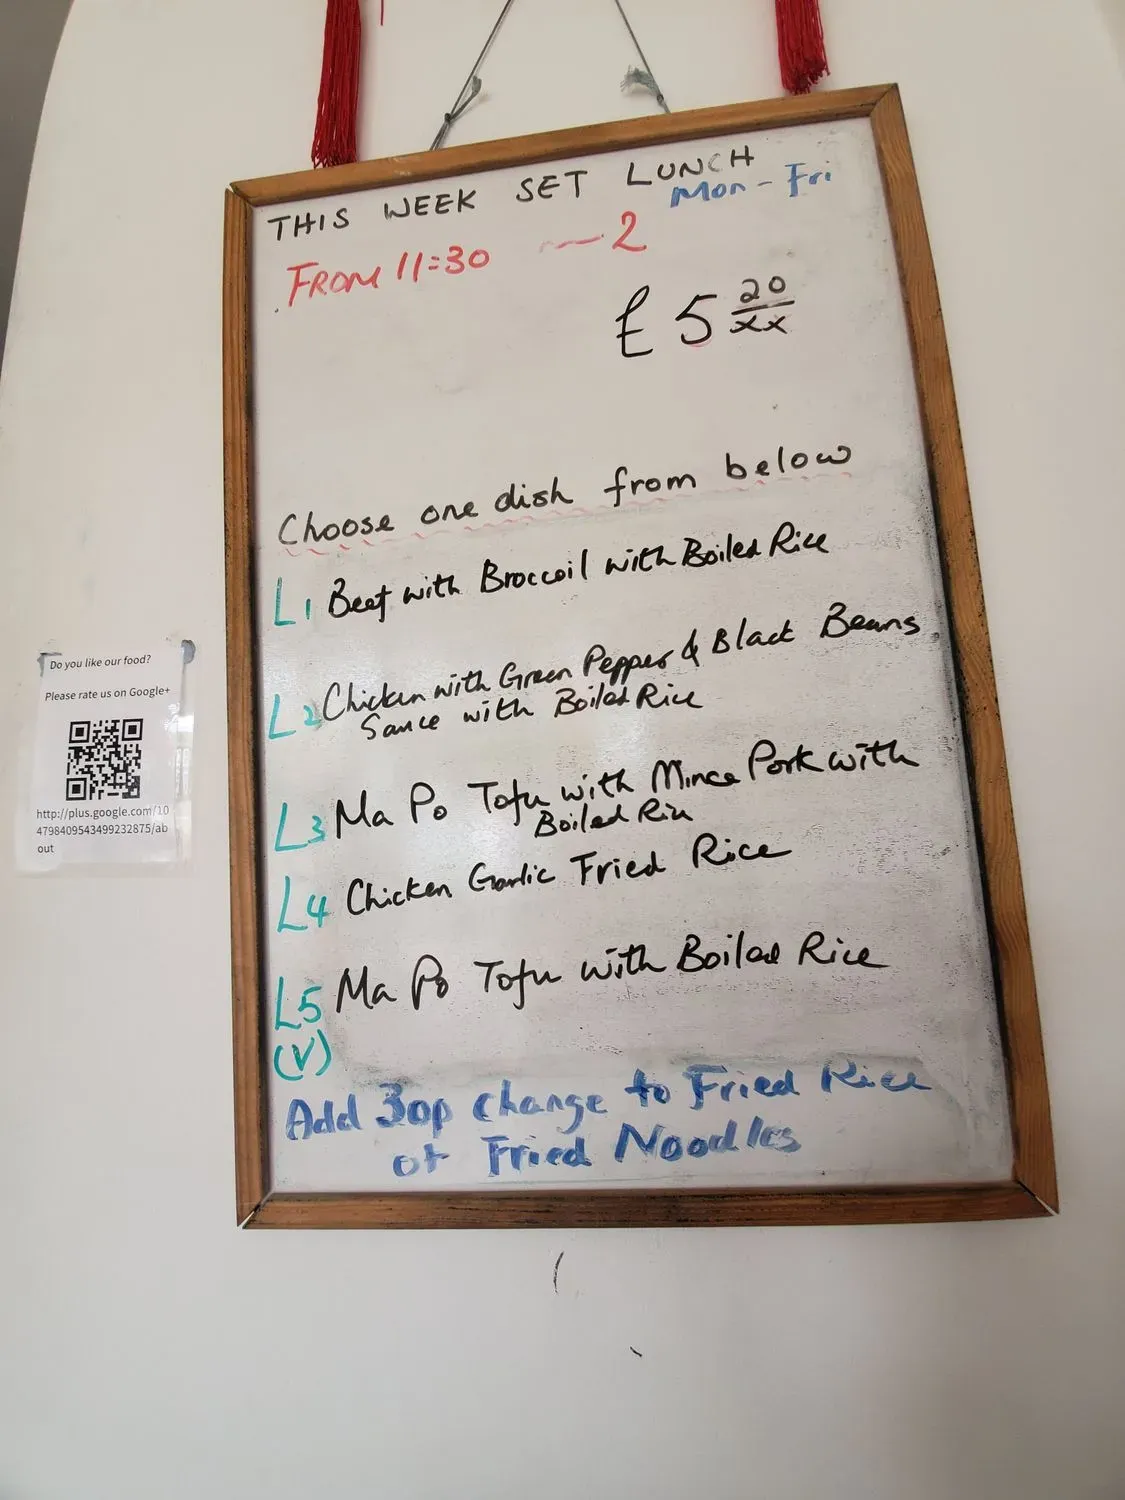 THIS WEEK SET LUNCH
Mon - Fri
FROM 11:30 — 2
£ 5 20/xx
Choose one dish from below
L1 Beef with Broccoil with Boiled Rice
L2 Chicken with Green Pepper & Black Beans
Sauce with Boiled Rice
L3 Ma Po Tofu with Mince Pork with
Boiled Rice
L4 Chicken Garlic Fried Rice
L5 Ma Po Tofu with Boiled Rice
(V)
Add 30p change to Fried Rice
or Fried Noodles
Do you like our food?
Please rate us on Google+
http://plus.google.com/10
4798409543499232875/ab
out